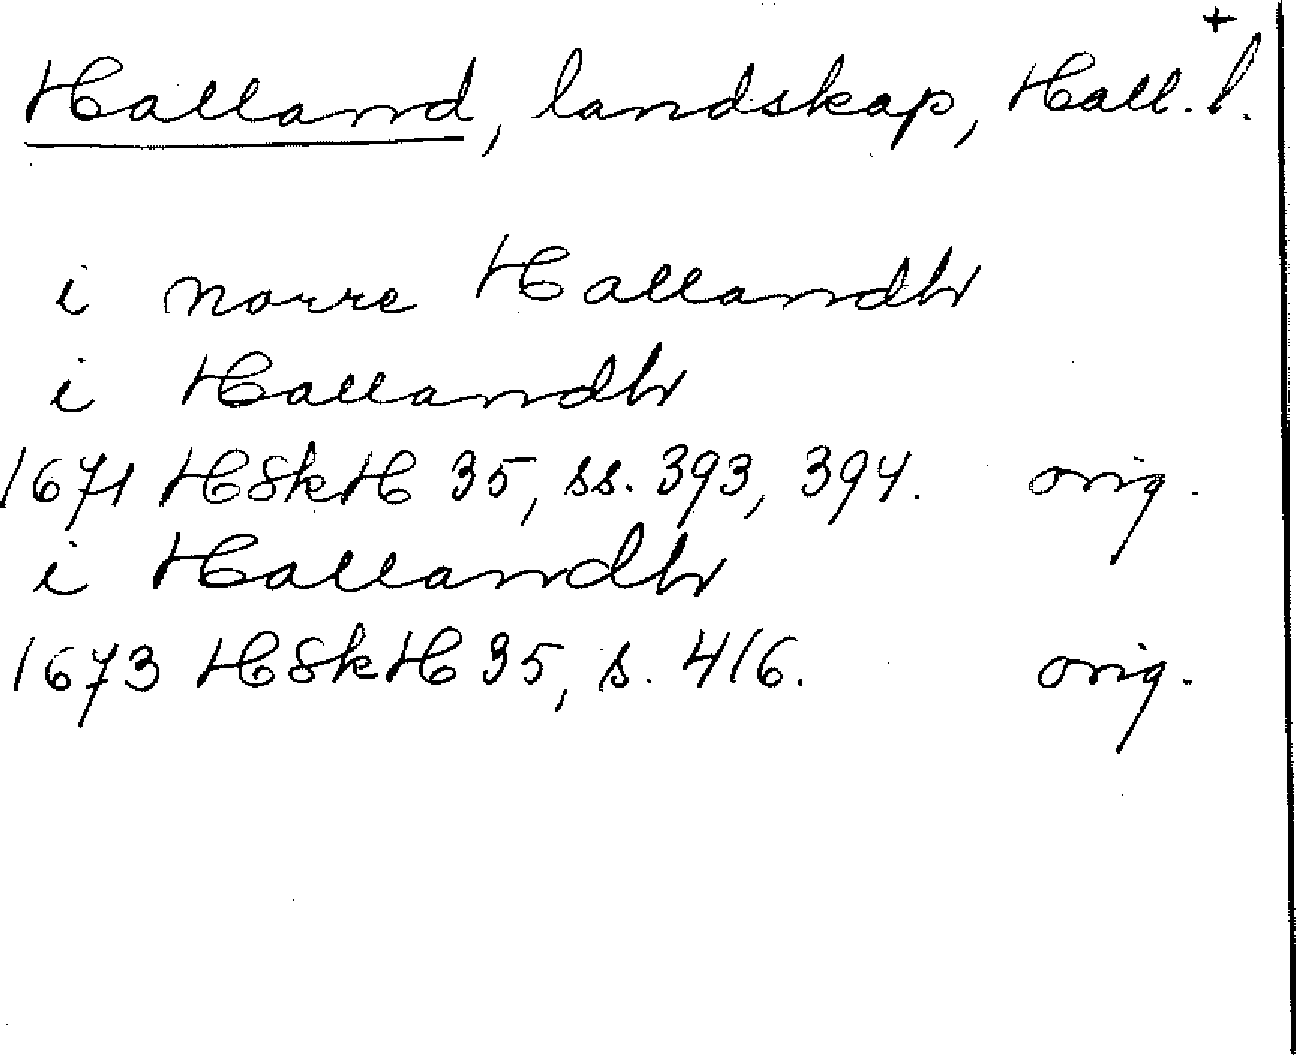 +
Halland, landskap, Hall. l.
i norre Hallandh
i Hallandh
1671 HSkH 35, ss. 393, 394. orig.
i Hallandh
1673 HSkH 35, s. 416. orig.